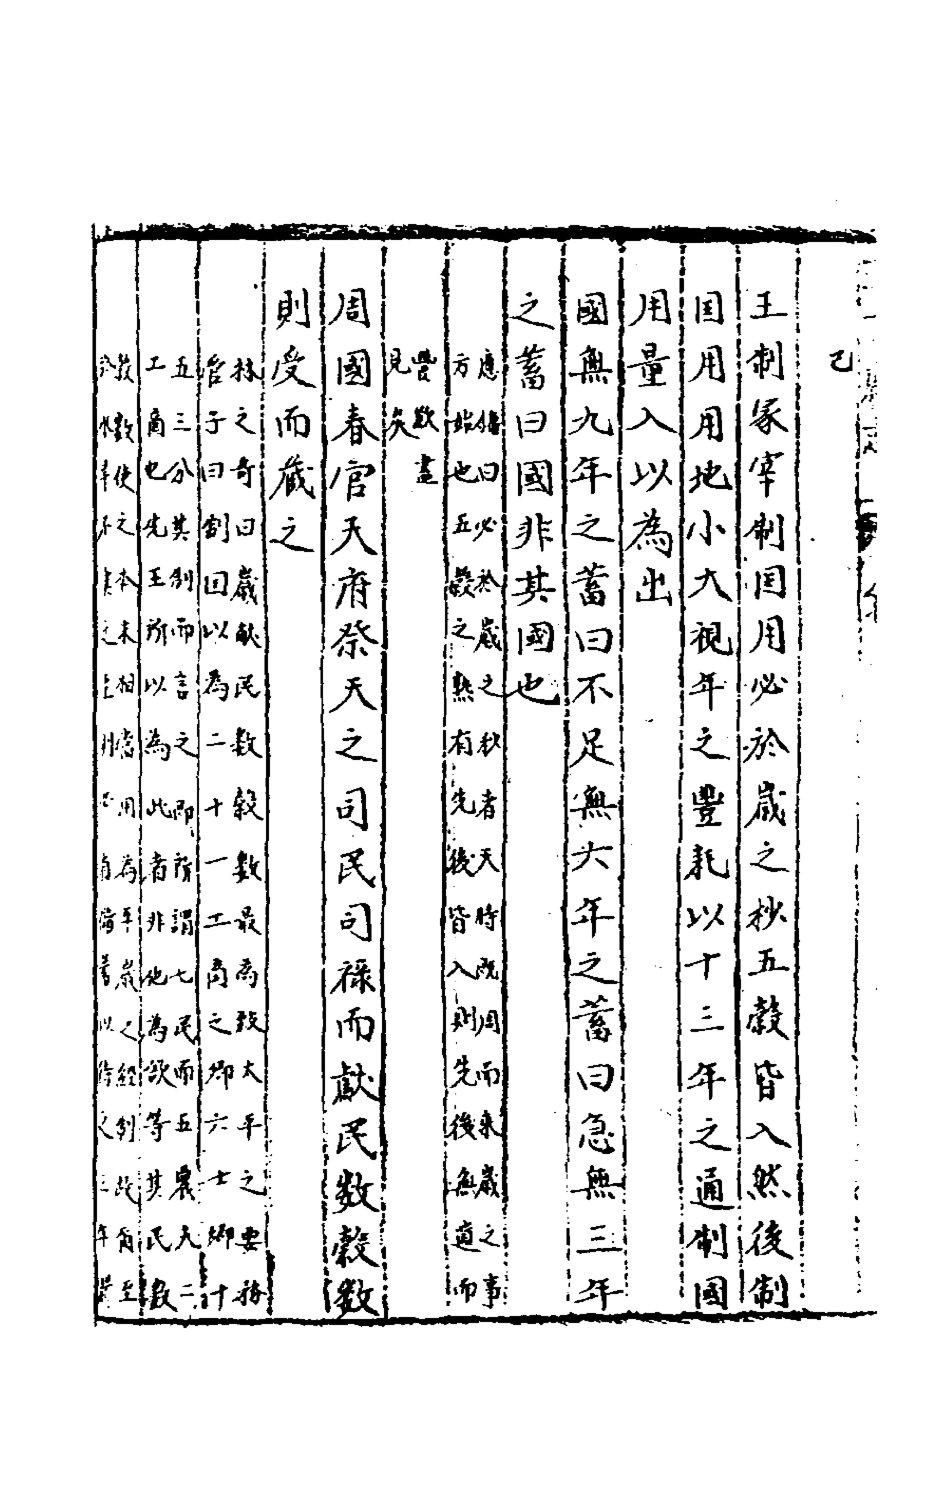 己
王制冢宰制国用必於歲之杪五穀皆入然後制
国用用地小大視年之豐耗以十三年之通制國
用量入以為出
國無九年之蓄曰不足無六年之蓄曰急無三年
之蓄曰國非其國也
應鏞曰必於歲之秒者天時既周而來歲之事
方始也五穀之熟有先後皆入則先後無適而
豐歉盡
見矣
周國春官天府祭天之司民司祿而獻民数穀数
則受而藏之
林之奇曰歲献民数穀數最為致太平之要務
管子曰制囯以為二十一工商之鄉六士鄉十
五三分其制而言之即所謂七民而五農夫二
工商也先王所以為此者非他為欲等其民穀
数數使之本末相當用為平歲之經制故有至
於水旱不